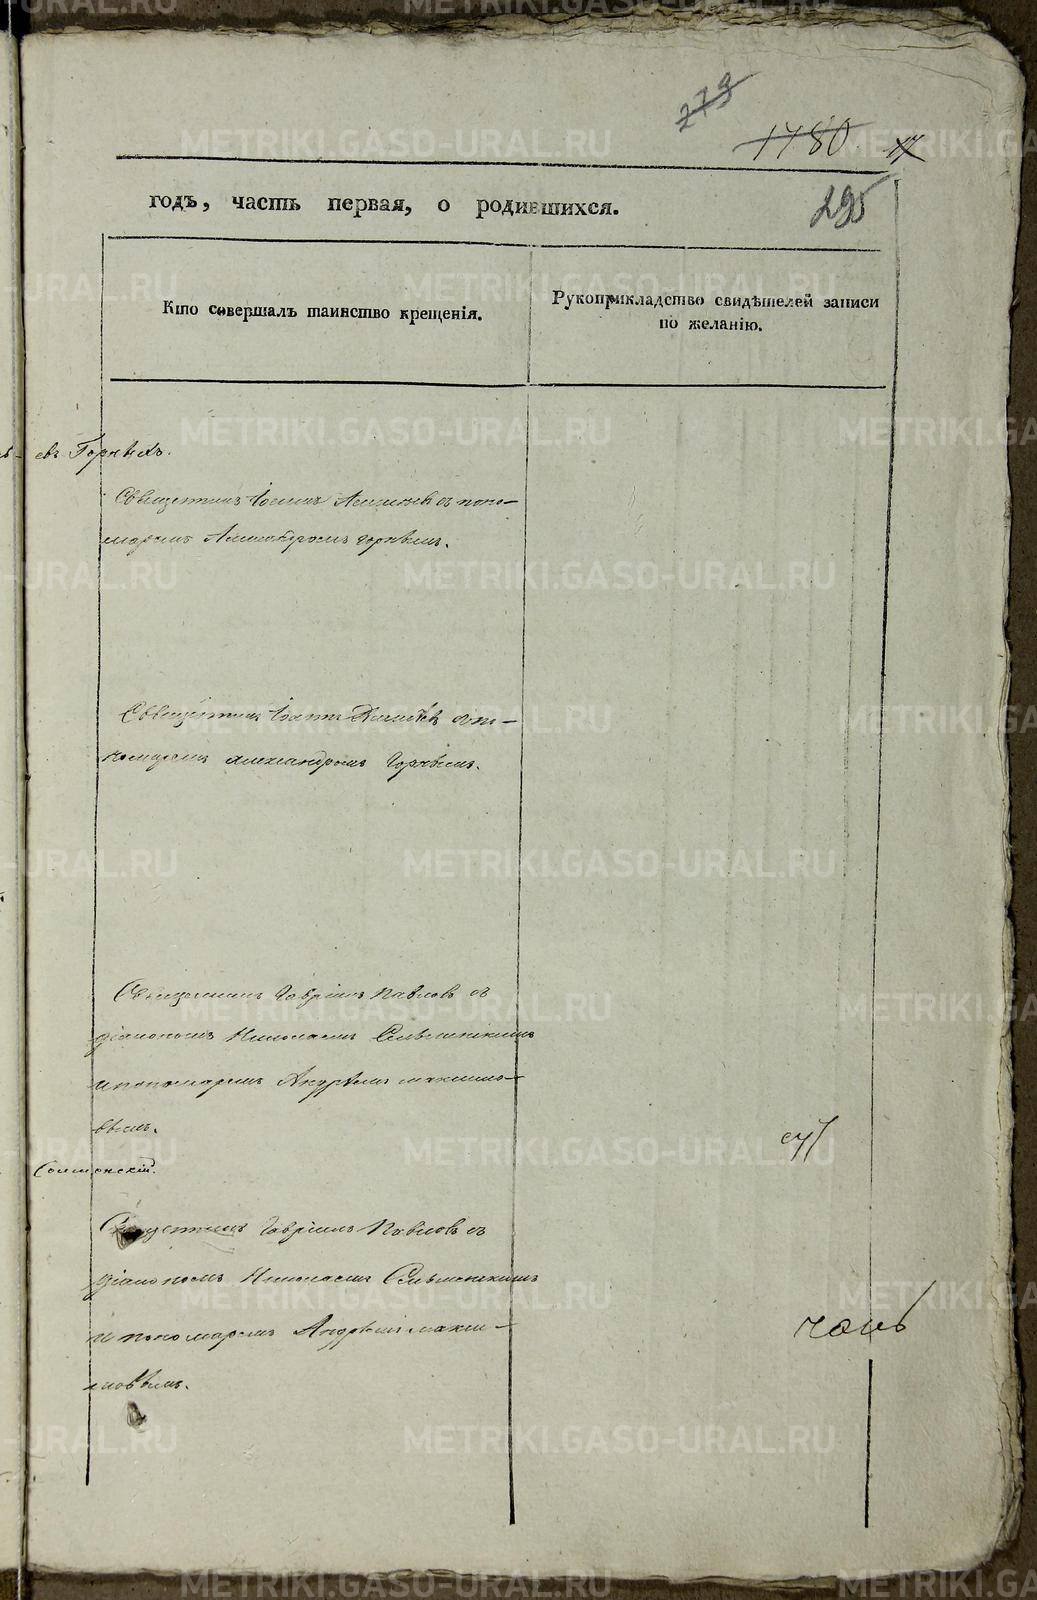 273
1780 17
295
годъ, часть первая, о родившихся.
Кто совершалъ таинство крещенія.
Рукоприкладство свидѣтелей записи
по желанію.
евъ Горныхъ.
Священникъ Іоаннъ съ поно-
маремъ Александромъ Горнымъ.
Священникъ Іоаннъ с по-
номаремъ Александромъ Горнымъ.
Священникъ Гавріилъ Павловъ съ
діакономъ Николаемъ
и пономаремъ Андреемъ Максимо-
вымъ.
Священникъ Гавріилъ Павловъ съ
діакономъ Николаемъ
и пономаремъ Андреемъ Макси-
мовымъ.
METRIKI.GASO-URAL.RU